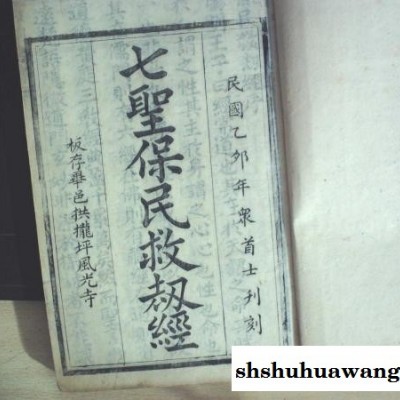 民國乙卯年衆首士刋刻
七聖保民救刼經
板存畢邑拱攏坪風光寺
shshuhuawang